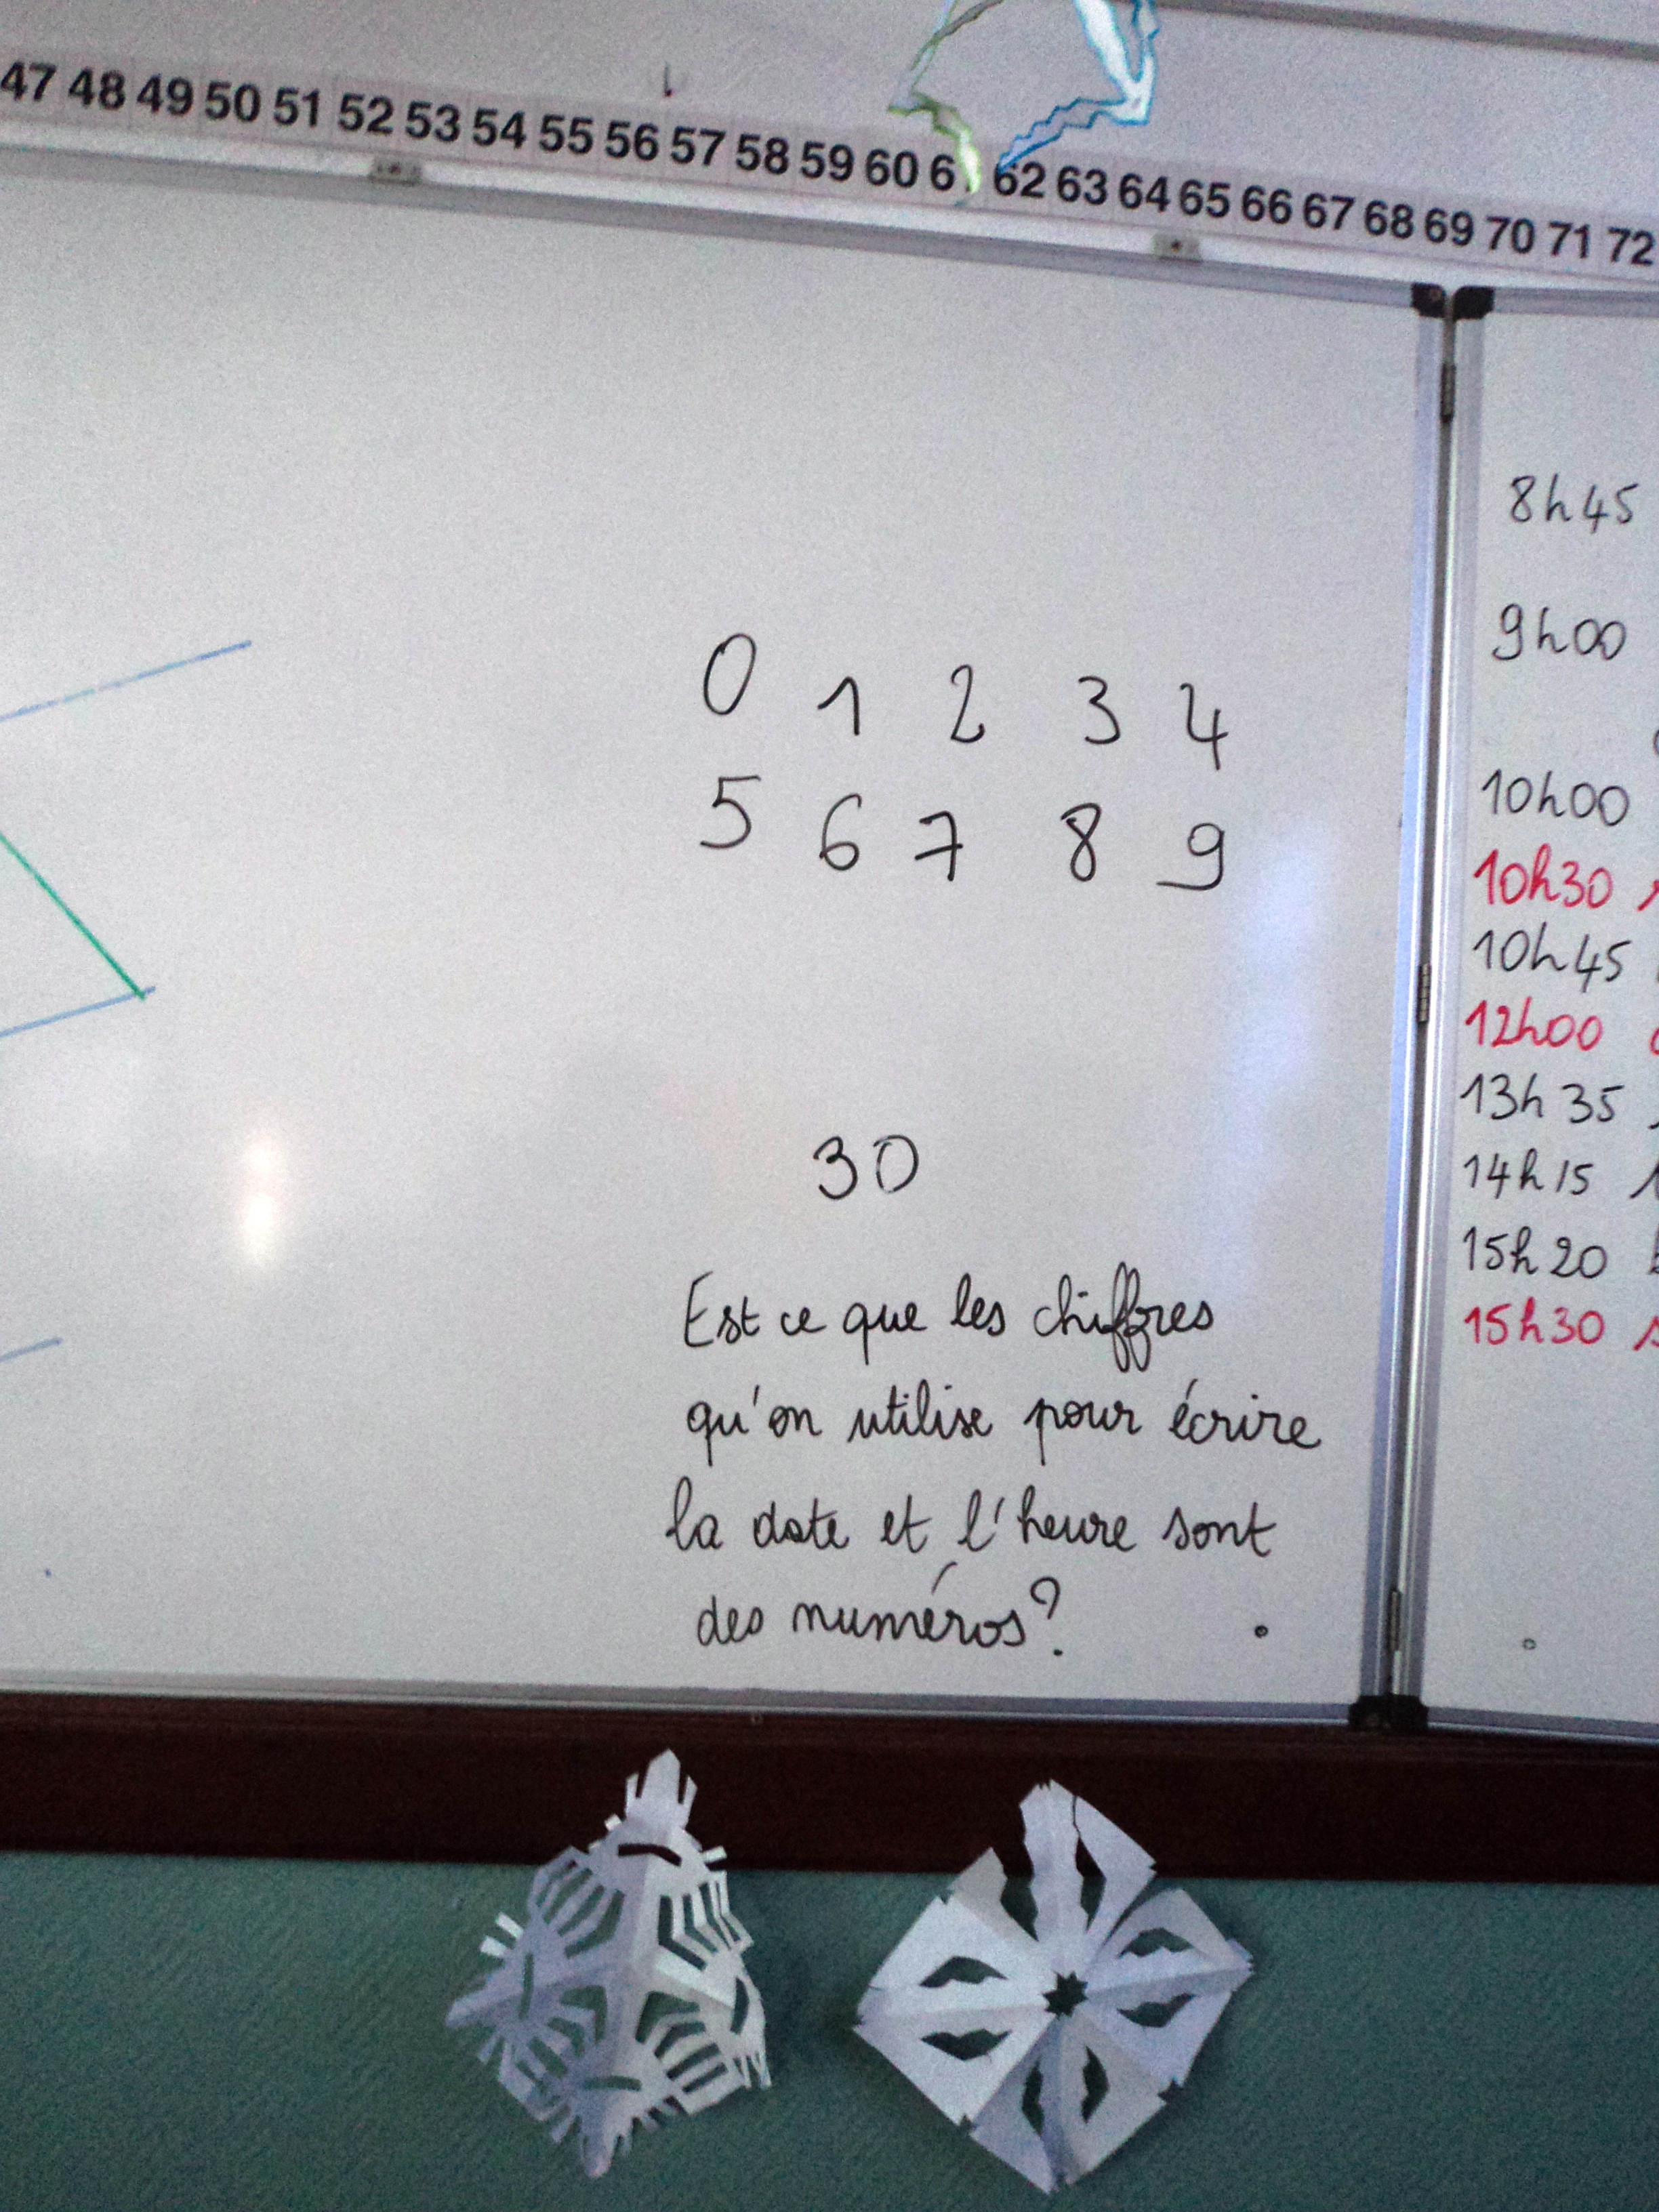 47 48 49 50 51 52 53 54 55 56 57 58 59 60 62 63 64 65 66 67 68 69 70 71 72
0 1 2 3 4
5 6 7 8 9
30
Est ce que les chiffres
qu'on utilise pour écrire
la date et l'heure sont
des numéros?
8h45
9h00
10h00
10h30
10h45
12h00
13h35
14h15
15h20
15h30